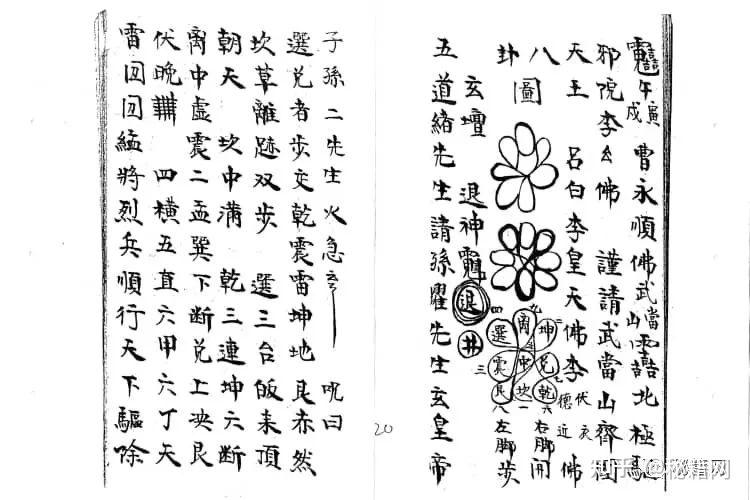 午寅戌 曹永順佛武當山 北極驅
邪院李幺佛 謹請武當山齊國
天王 呂白李皇天佛李
德近
伏
佛
八卦圖
四 九 二
選 离 坤
三 震 中 兌
艮 坎 乾
八 一 六
右脚開
左脚步
玄壇 退神
退
井
五道緒先生請孫臞先生玄皇帝
子孫二先生火急 咒曰
選兌者步定乾震雷坤地艮亦然
坎草離跡双步 選三台皈耒頂
朝天 坎中滿 乾三連坤六断
离中虛震二盂巽下断兌上央艮
伏晚 四橫五直六甲六丁天
雷回回猛將烈兵順行天下驅除
20
知乎 @秘籍网